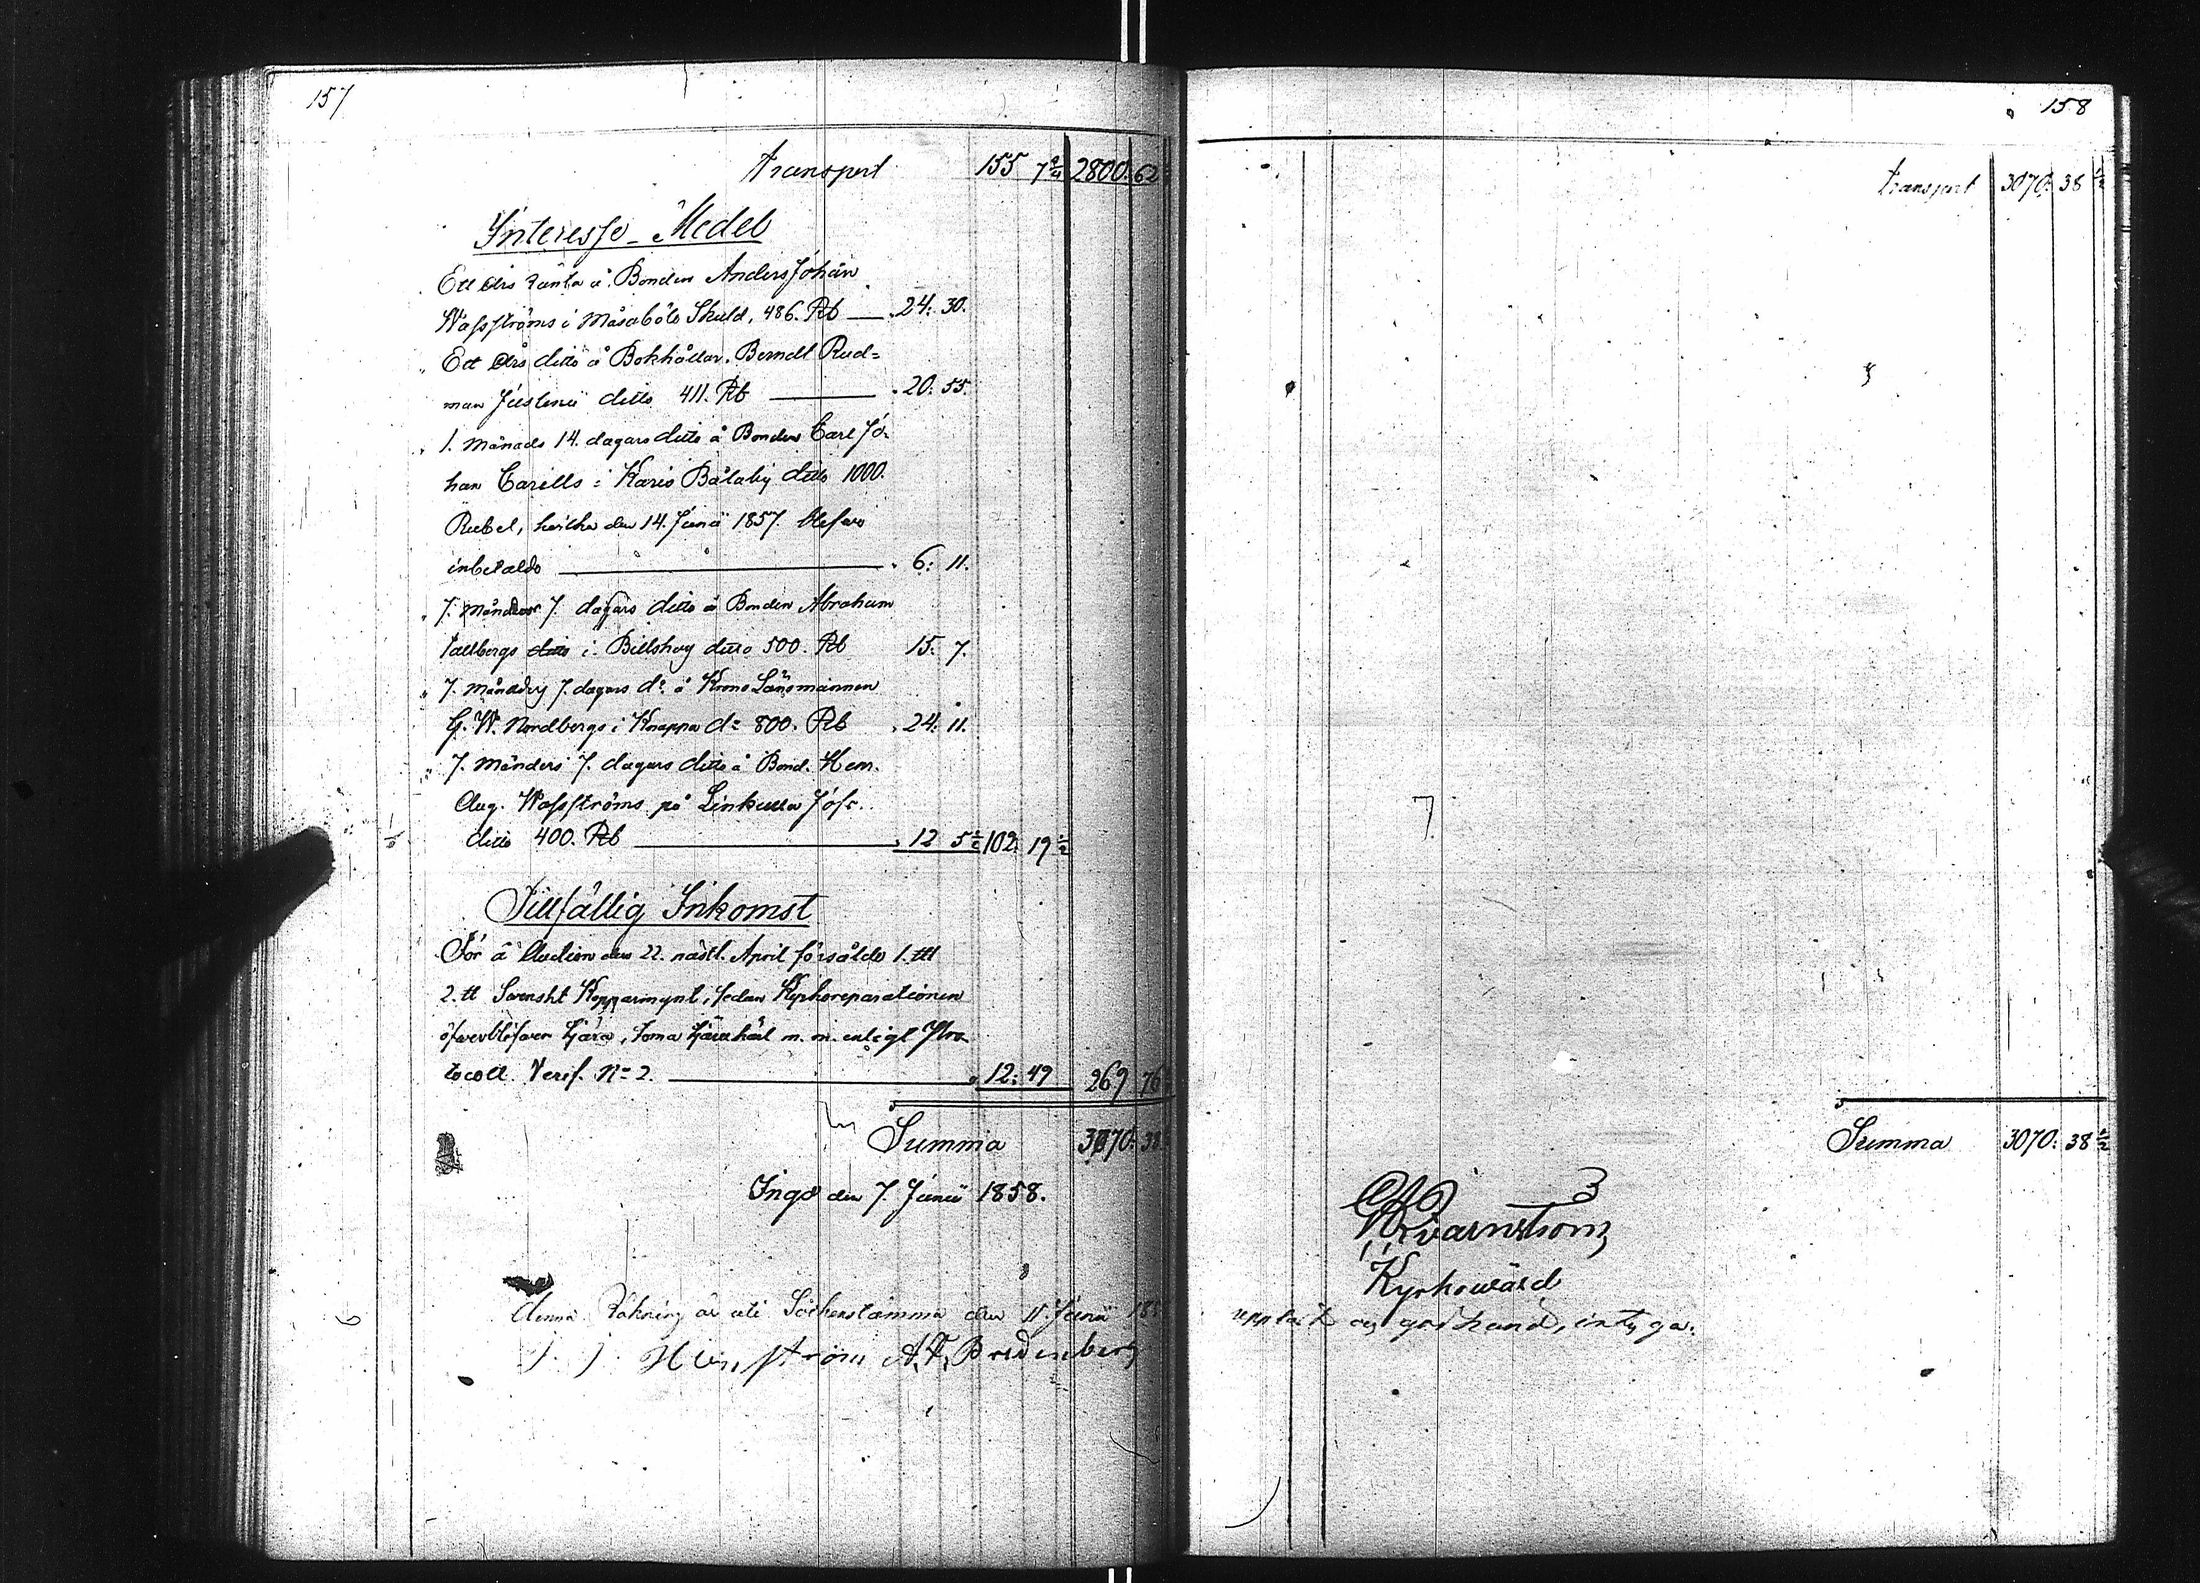 157
Transport 155 7 2/4 2800: 62
Interesse-Medel
Ett Års ränta å Bonden Anders Johan
Wassströms i Måsaböle Skuld, 486. Rb — 24: 30.
" Ett Års ditto å Bokhållar. Berndt Rud=
man Justenii ditto 411. Rb — 20: 55.
" 1. Månads 14. dagars ditto å Bonden Carl Jo-
han Carells i Karis Bålaby ditto 1000.
Rubel, hvilka den 14. Junii 1857. blefvo
inbetalde — 6: 11.
" 7. Månaders 7. dagars ditto å Bonden Abraham
Tallbergs i Billskog ditto 500. Rb 15: 7.
" 7. Månaders 7. dagars do å Krono Länsmannen
G. W. Nordbergs i Knappa do 800. Rb 24: 11.
" 7. Månders 7. dagars ditto å Bond. Hem.
Aug. Wassströms på Linkulla
ditto 400. Rb — 12 5 1/2 102: 19 1/2
Tillfällig Inkomst
För å Auction den 22. nästl. April försålde 1.
2. tt Svenskt Kopparmynt, sedan Kyrkoreparationen
öfverblefven tjära, toma tjärukäril m. m. enligt Pro-
tocoll. Verif. No 2. — 12: 49 269 76
Summa 3070: 38
Ingå den 7. Junii 1858.
denna Räkning är uti Sockenstämma den 11 Junii 185
J. J. Hellström A. F. Bredenberg
158
Transport 3070: 38 1/2
Summa 3070: 38 1/2
Kvarnström
Kyrkowärd
uppläst och godkänd, intyga: